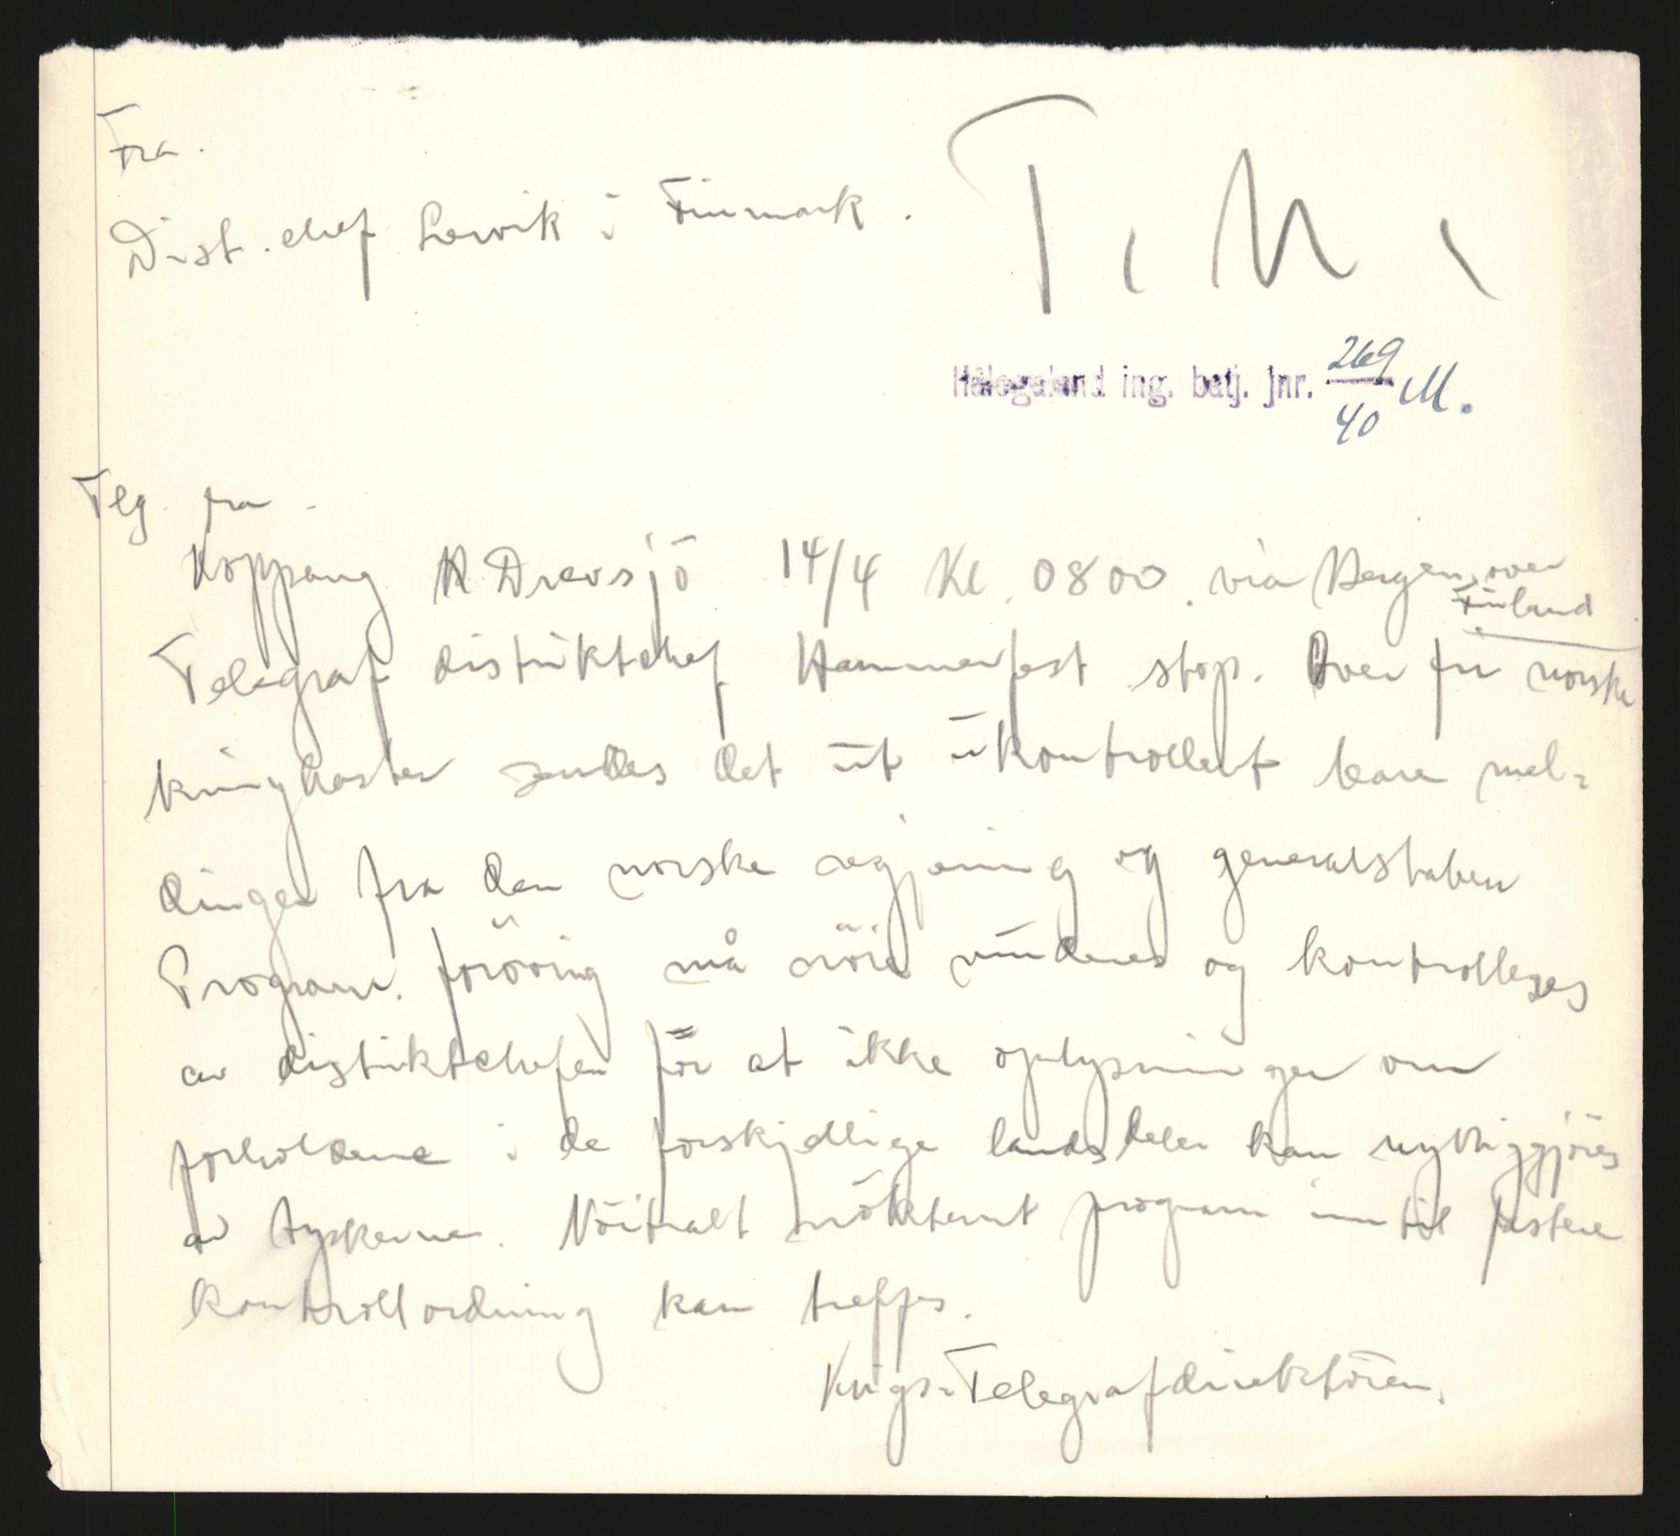 Fra.
Dist. chef Lervik i Finmark.
T. M.
Hålogaland ing. batj. Jnr. 269/40 M.
Tlg. fra.
Koppang R Drevsjö 14/4 Kl. 0800. via Bergen, over
Finland
Telegraf distriktchef Hammerfest stop. Over fri norske
kringkaster sendes det ut ukontrollert bare mel-
dinger fra den norske regjering og generalstaben
Program. forövrig må nöie vurderes og kontrolleres
av distriktchefen för at ikke oplysninger om
forholdene i de forskjellige landsdeler kan nyttiggjöres
av tyskerne. Nöitralt nökternt program inntil fastere
kontrollordning kan treffes.
Krigs-Telegrafdirektören.